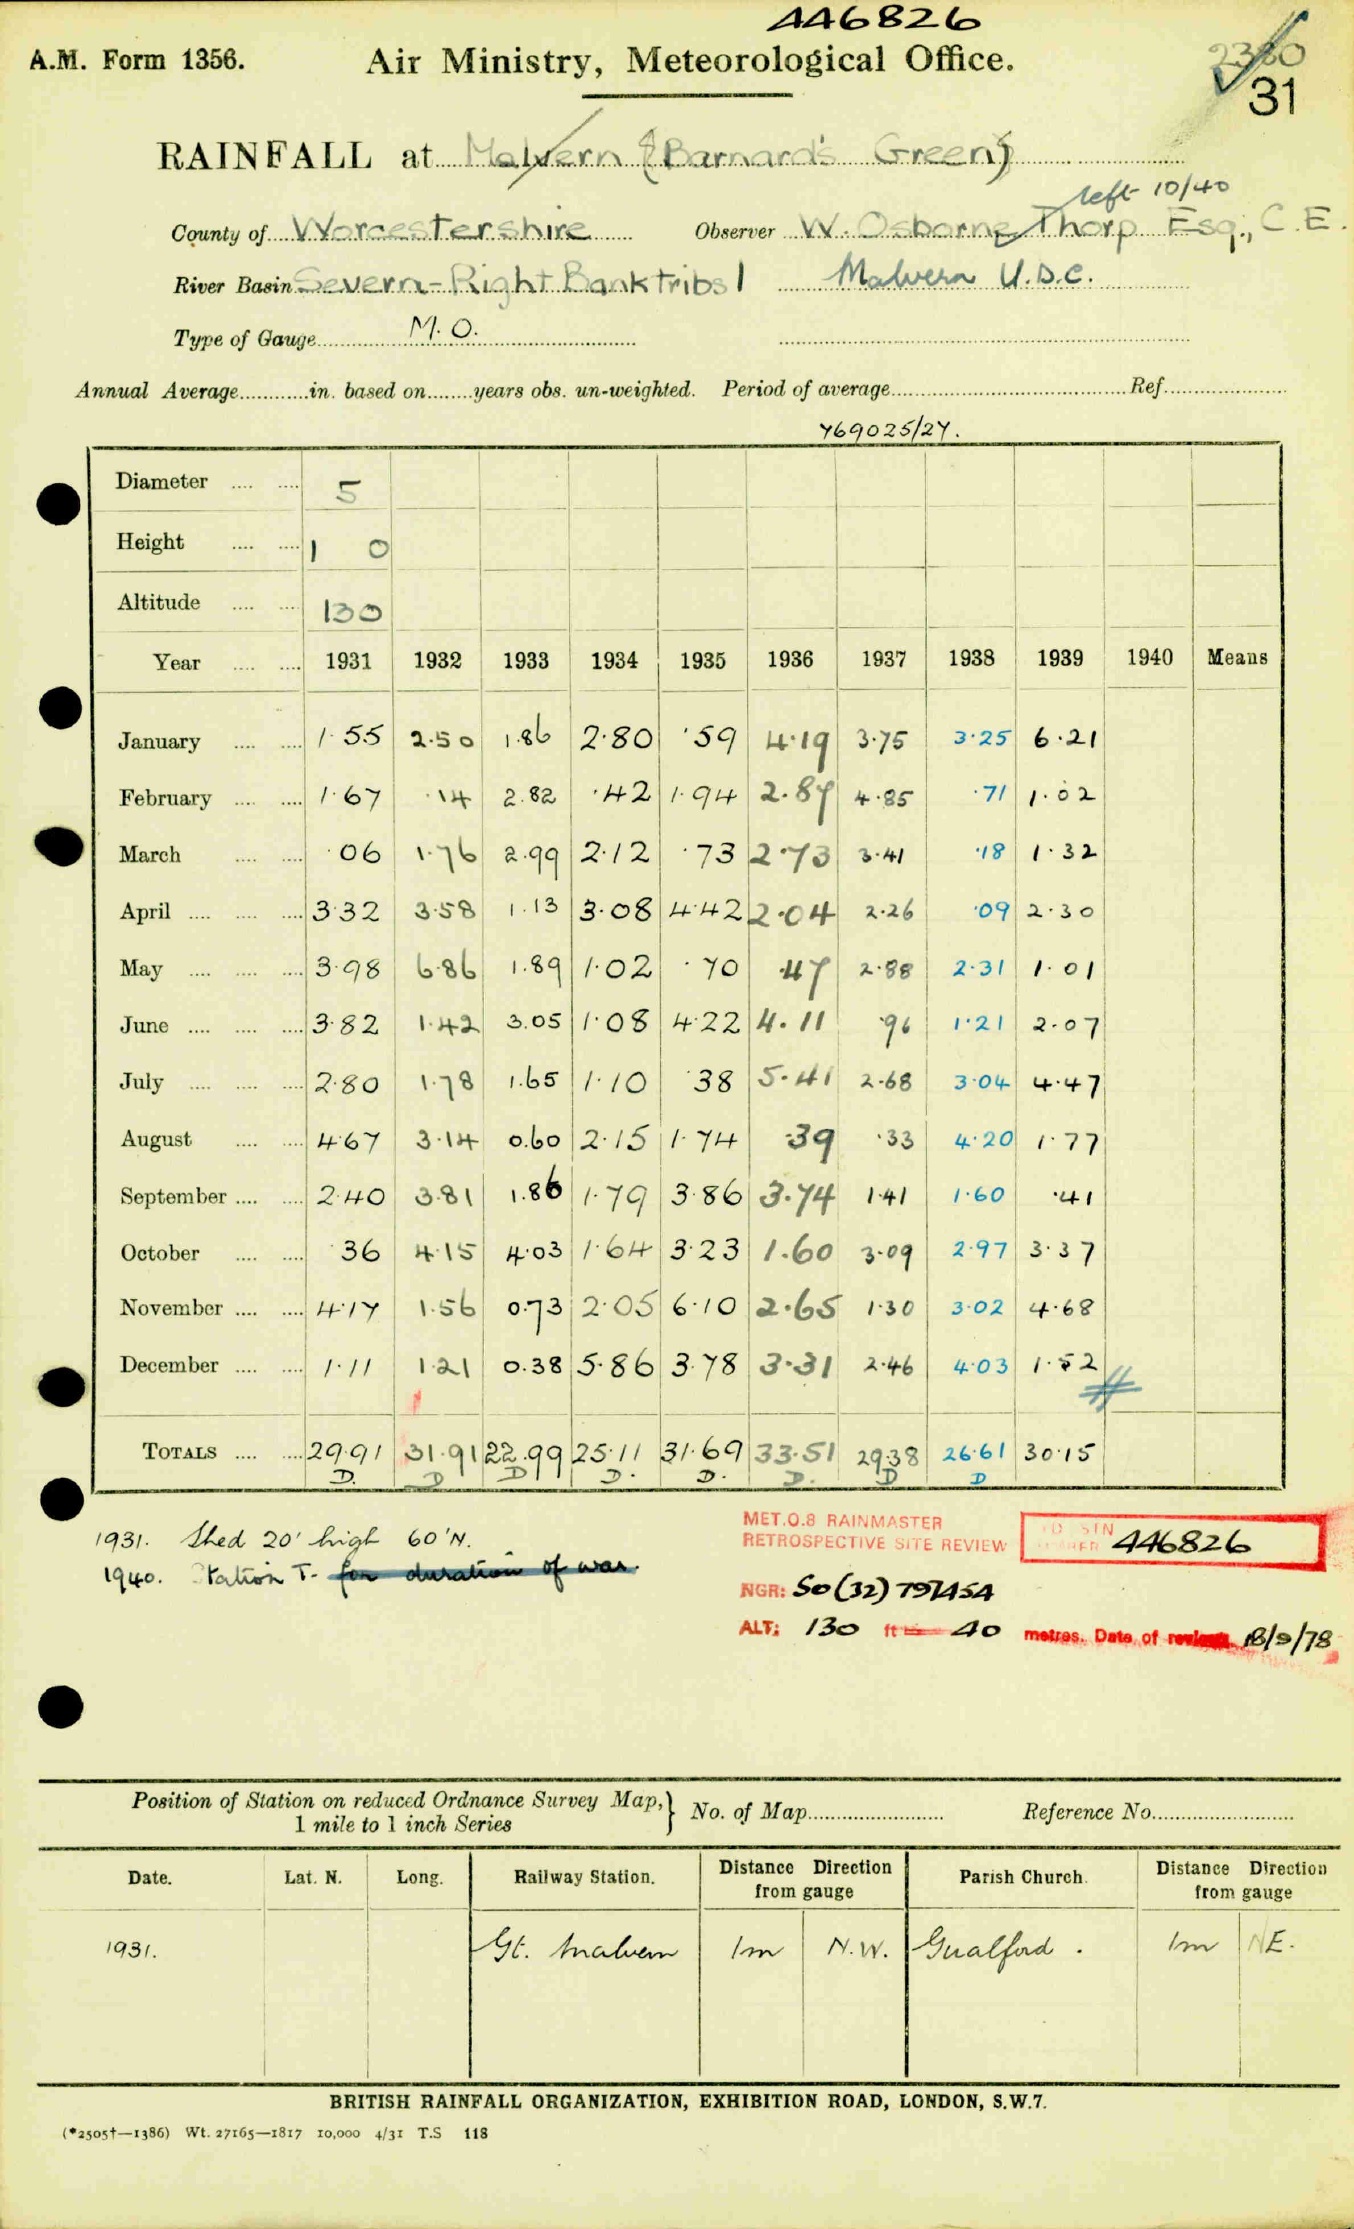 446826
A.M. Form 1356. Air Ministry, Meteorological Office. 2380
31
RAINFALL at Malvern (Barnard's Green)
left 10/40
County of Worcestershire Observer W. Osborne Thorp Esq., C.E.
River Basin Severn-Right Bank Tribs 1 Malvern U.D.C.
Type of Gauge M.O.
Annual Average in. based on years obs. un-weighted. Period of average Ref.
769025/27.
Diameter 5
Height 1 0
Altitude 130
Year 1931 1932 1933 1934 1935 1936 1937 1938 1939 1940 Means
January 1.55 2.50 1.86 2.80 .59 4.19 3.75 3.25 6.21
February 1.67 .14 2.82 .42 1.94 2.87 4.85 .71 1.02
March .06 1.76 2.99 2.12 .73 2.73 3.41 .18 1.32
April 3.32 3.58 1.13 3.08 4.42 2.04 2.26 .09 2.30
May 3.98 6.86 1.89 1.02 .70 .47 2.88 2.31 1.01
June 3.82 1.42 3.05 1.08 4.22 4.11 .96 1.21 2.07
July 2.80 1.78 1.65 1.10 .38 5.41 2.68 3.04 4.47
August 4.67 3.14 0.60 2.15 1.74 .39 .33 4.20 1.77
September 2.40 3.81 1.86 1.79 3.86 3.74 1.41 1.60 .41
October .36 4.15 4.03 1.64 3.23 1.60 3.09 2.97 3.37
November 4.17 1.56 0.73 2.05 6.10 2.65 1.30 3.02 4.68
December 1.11 1.21 0.38 5.86 3.78 3.31 2.46 4.03 1.52
TOTALS 29.91 31.91 22.99 25.11 31.69 33.51 29.38 26.61 30.15
D. D D D. D. D. D D
1931. Shed 20' high 60'N.
1940. Station T. for duration of war.
MET.O.8 RAINMASTER
RETROSPECTIVE SITE REVIEW STN 446826
NGR: SO (32) 797454
ALT: 130 ft = 40 metres. Date of review 18/9/78
Position of Station on reduced Ordnance Survey Map, 1 mile to 1 inch Series } No. of Map Reference No.
Date. Lat. N. Long. Railway Station. Distance Direction from gauge Parish Church. Distance Direction from gauge
1931. Gt. Malvern 1m N.W. Gualford. 1m NE.
BRITISH RAINFALL ORGANIZATION, EXHIBITION ROAD, LONDON, S.W.7.
(*2505†—1386) Wt. 27165—1817 10,000 4/31 T.S 118